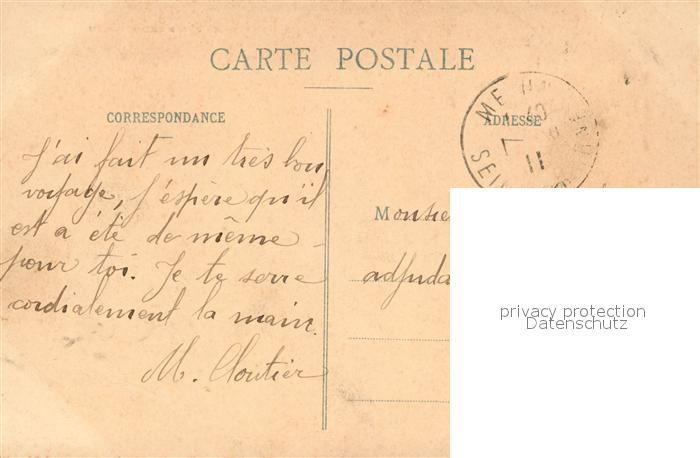 CARTE POSTALE
CORRESPONDANCE
ADRESSE
J'ai fait un très bon
voyage, j'espère qu'il
est a été de même
pour toi. Je te serre
cordialement la main.
M. Cloutier
Monsie
adjuda
privacy protection
Datenschutz